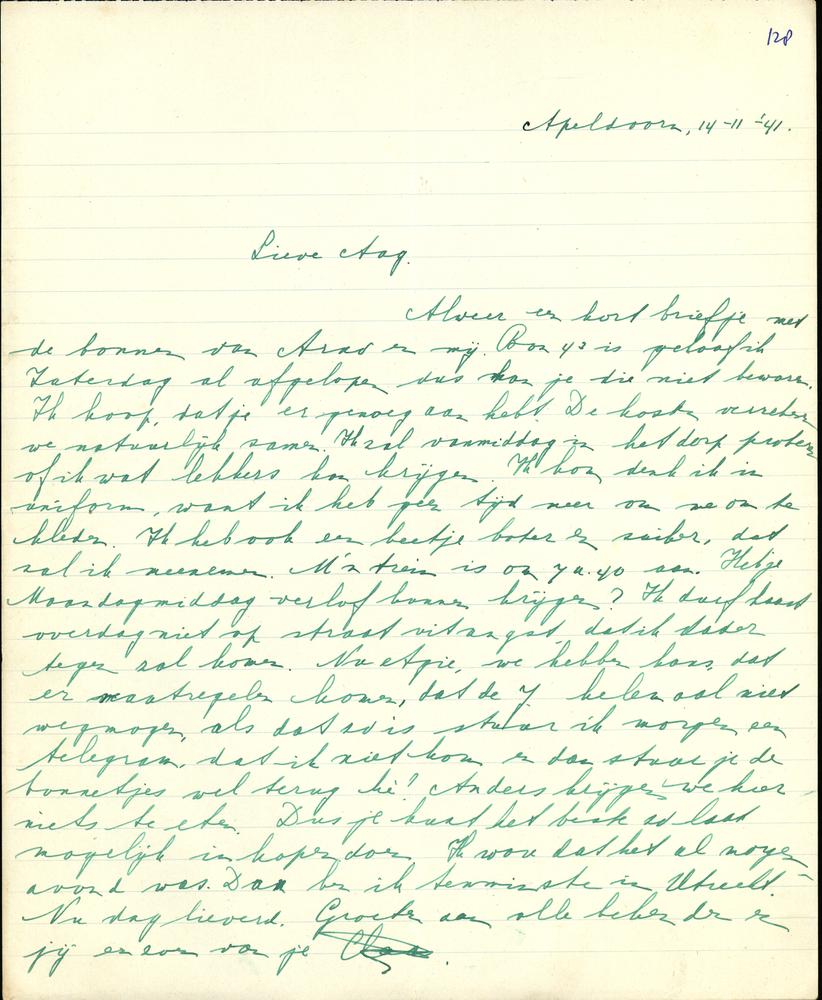 128
Apeldoorn, 14-11-'41.
Lieve Aag.
Alweer een kort briefje met
de bonnen van Arno en mij. Bon 43 is geloof ik
Zaterdag al afgelopen dus kan je die niet bewaren.
Ik hoop, dat je er genoeg aan hebt. De kosten verreken
we natuurlijk samen. Ik zal vanmiddag in het dorp proberen
of ik wat lekkers kan krijgen. Ik kom denk ik in
uniform, want ik heb geen tijd meer om me om te
kleden. Ik heb ook een beetje boter en suiker, dat
zal ik meenemen. M'n trein is om 7 u. 40 aan. Heb je
Maandagmiddag verlof kunnen krijgen? Ik durf haast
overdag niet op straat uit angst, dat ik
tegen zal komen. Nu we hebben kans, dat
er maatregelen komen, dat de J. helemaal niet
wegmogen, als dat zo is stuur ik morgen een
telegram, dat ik niet kom en dan stuur je de
bonnetjes wel terug hè! Anders krijgen we hier
niets te eten. Dus je kunt het beste zo laat
mogelijk inkopen doen. Ik wou dat het al morgen-
avond was. Dan ben ik tenminste in Utrecht.
Nu dag lieverd. Groeten aan alle bekenden en
jij en een van je